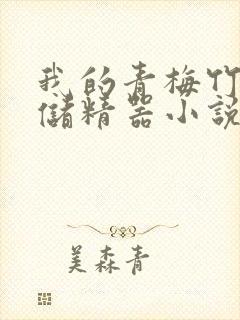 我的青梅竹
儲精器小説
美森青